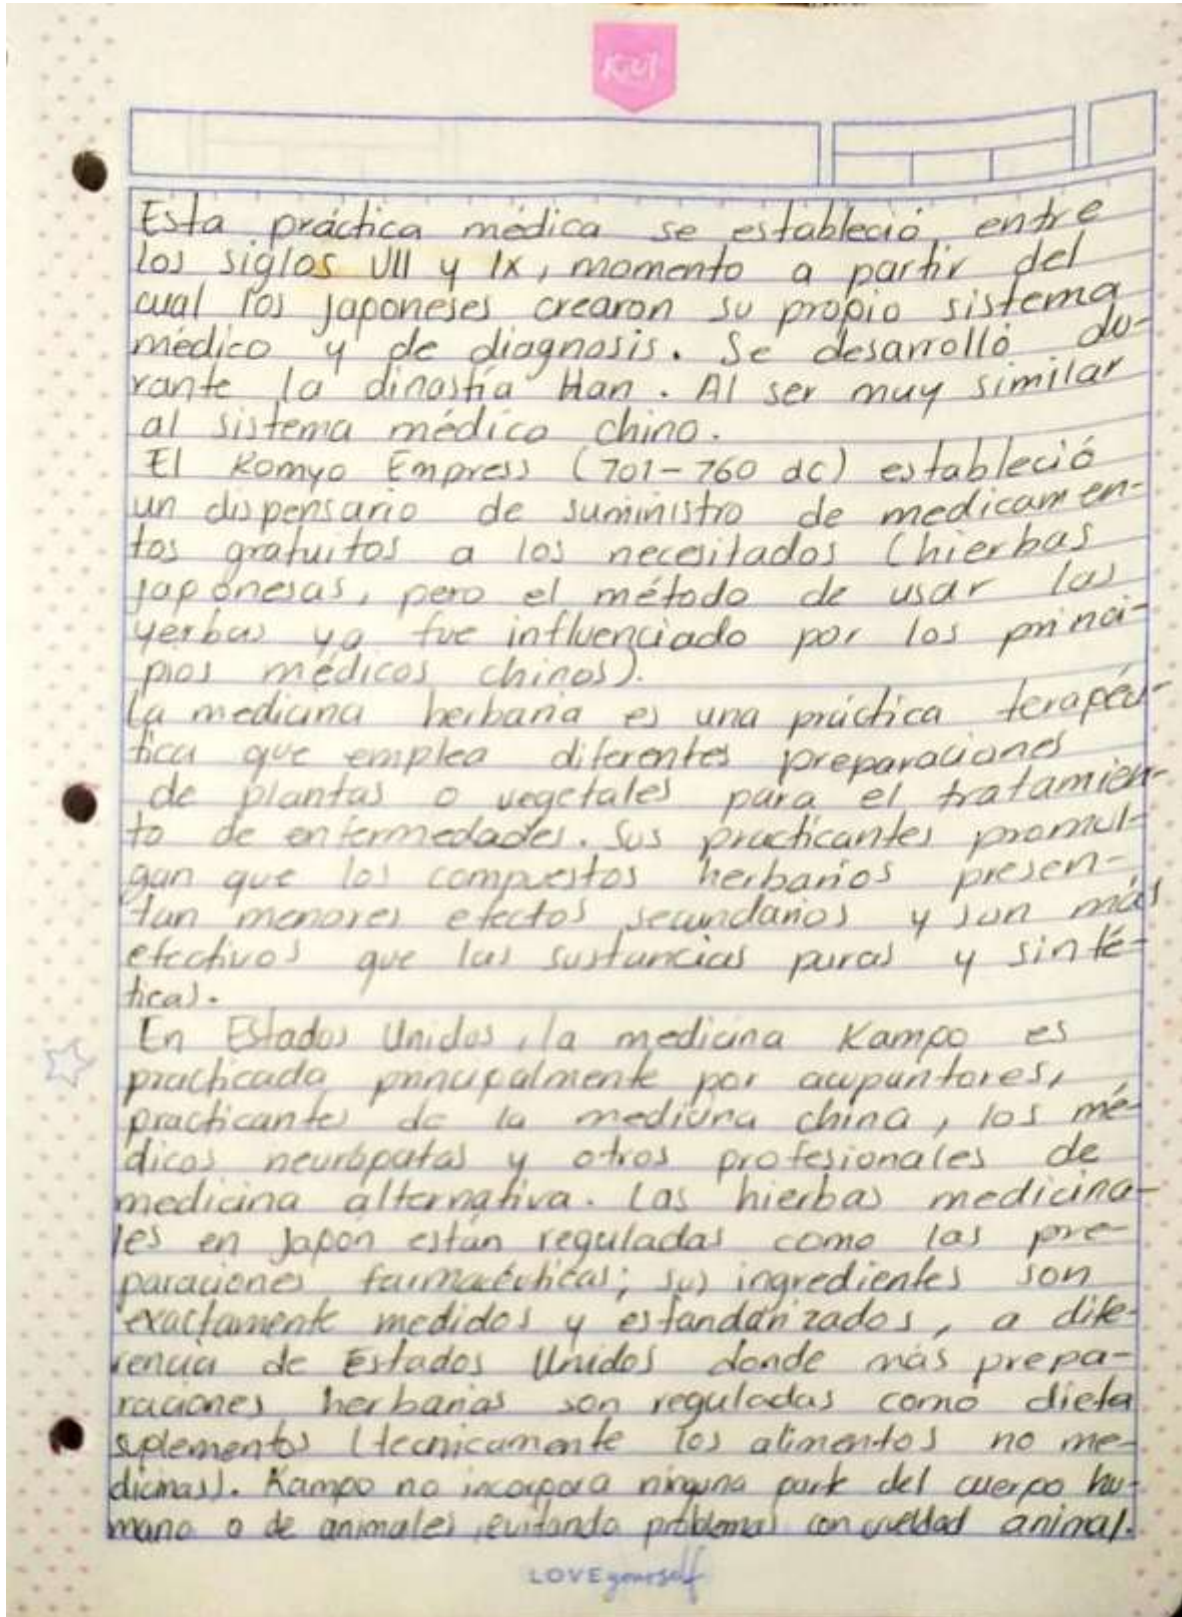 Kiut
Esta práctica médica se estableció entre
los siglos VII y IX, momento a partir del
cual los japoneses crearon su propio sistema
médico y de diagnosis. Se desarrolló du-
rante la dinastía Han. Al ser muy similar
al sistema médico chino.
El Komyo Empress (701-760 dc) estableció
un dispensario de suministro de medicamen-
tos gratuitos a los necesitados (hierbas
japonesas, pero el método de usar las
yerbas ya fue influenciado por los princi-
pios médicos chinos).
La medicina herbaria es una práctica terapéu-
tica que emplea diferentes preparaciones
de plantas o vegetales para el tratamien-
to de enfermedades. Sus practicantes promul-
gan que los compuestos herbarios presen-
tan menores efectos secundarios y son más
efectivos que las sustancias puras y sinté-
ticas.
En Estados Unidos, la medicina Kampo es
practicada principalmente por acupuntores,
practicantes de la medicina china, los mé-
dicos neurópatas y otros profesionales de
medicina alternativa. Las hierbas medicina-
les en Japón están reguladas como las pre-
paraciones farmacéuticas; sus ingredientes son
exactamente medidos y estandarizados, a dife-
rencia de Estados Unidos donde más prepa-
raciones herbarias son reguladas como dieta
suplementos (tecnicamente los alimentos no me-
dicinas). Kampo no incorpora ninguna parte del cuerpo hu-
mano o de animales, evitando problemas con crueldad animal.
LOVE yourself